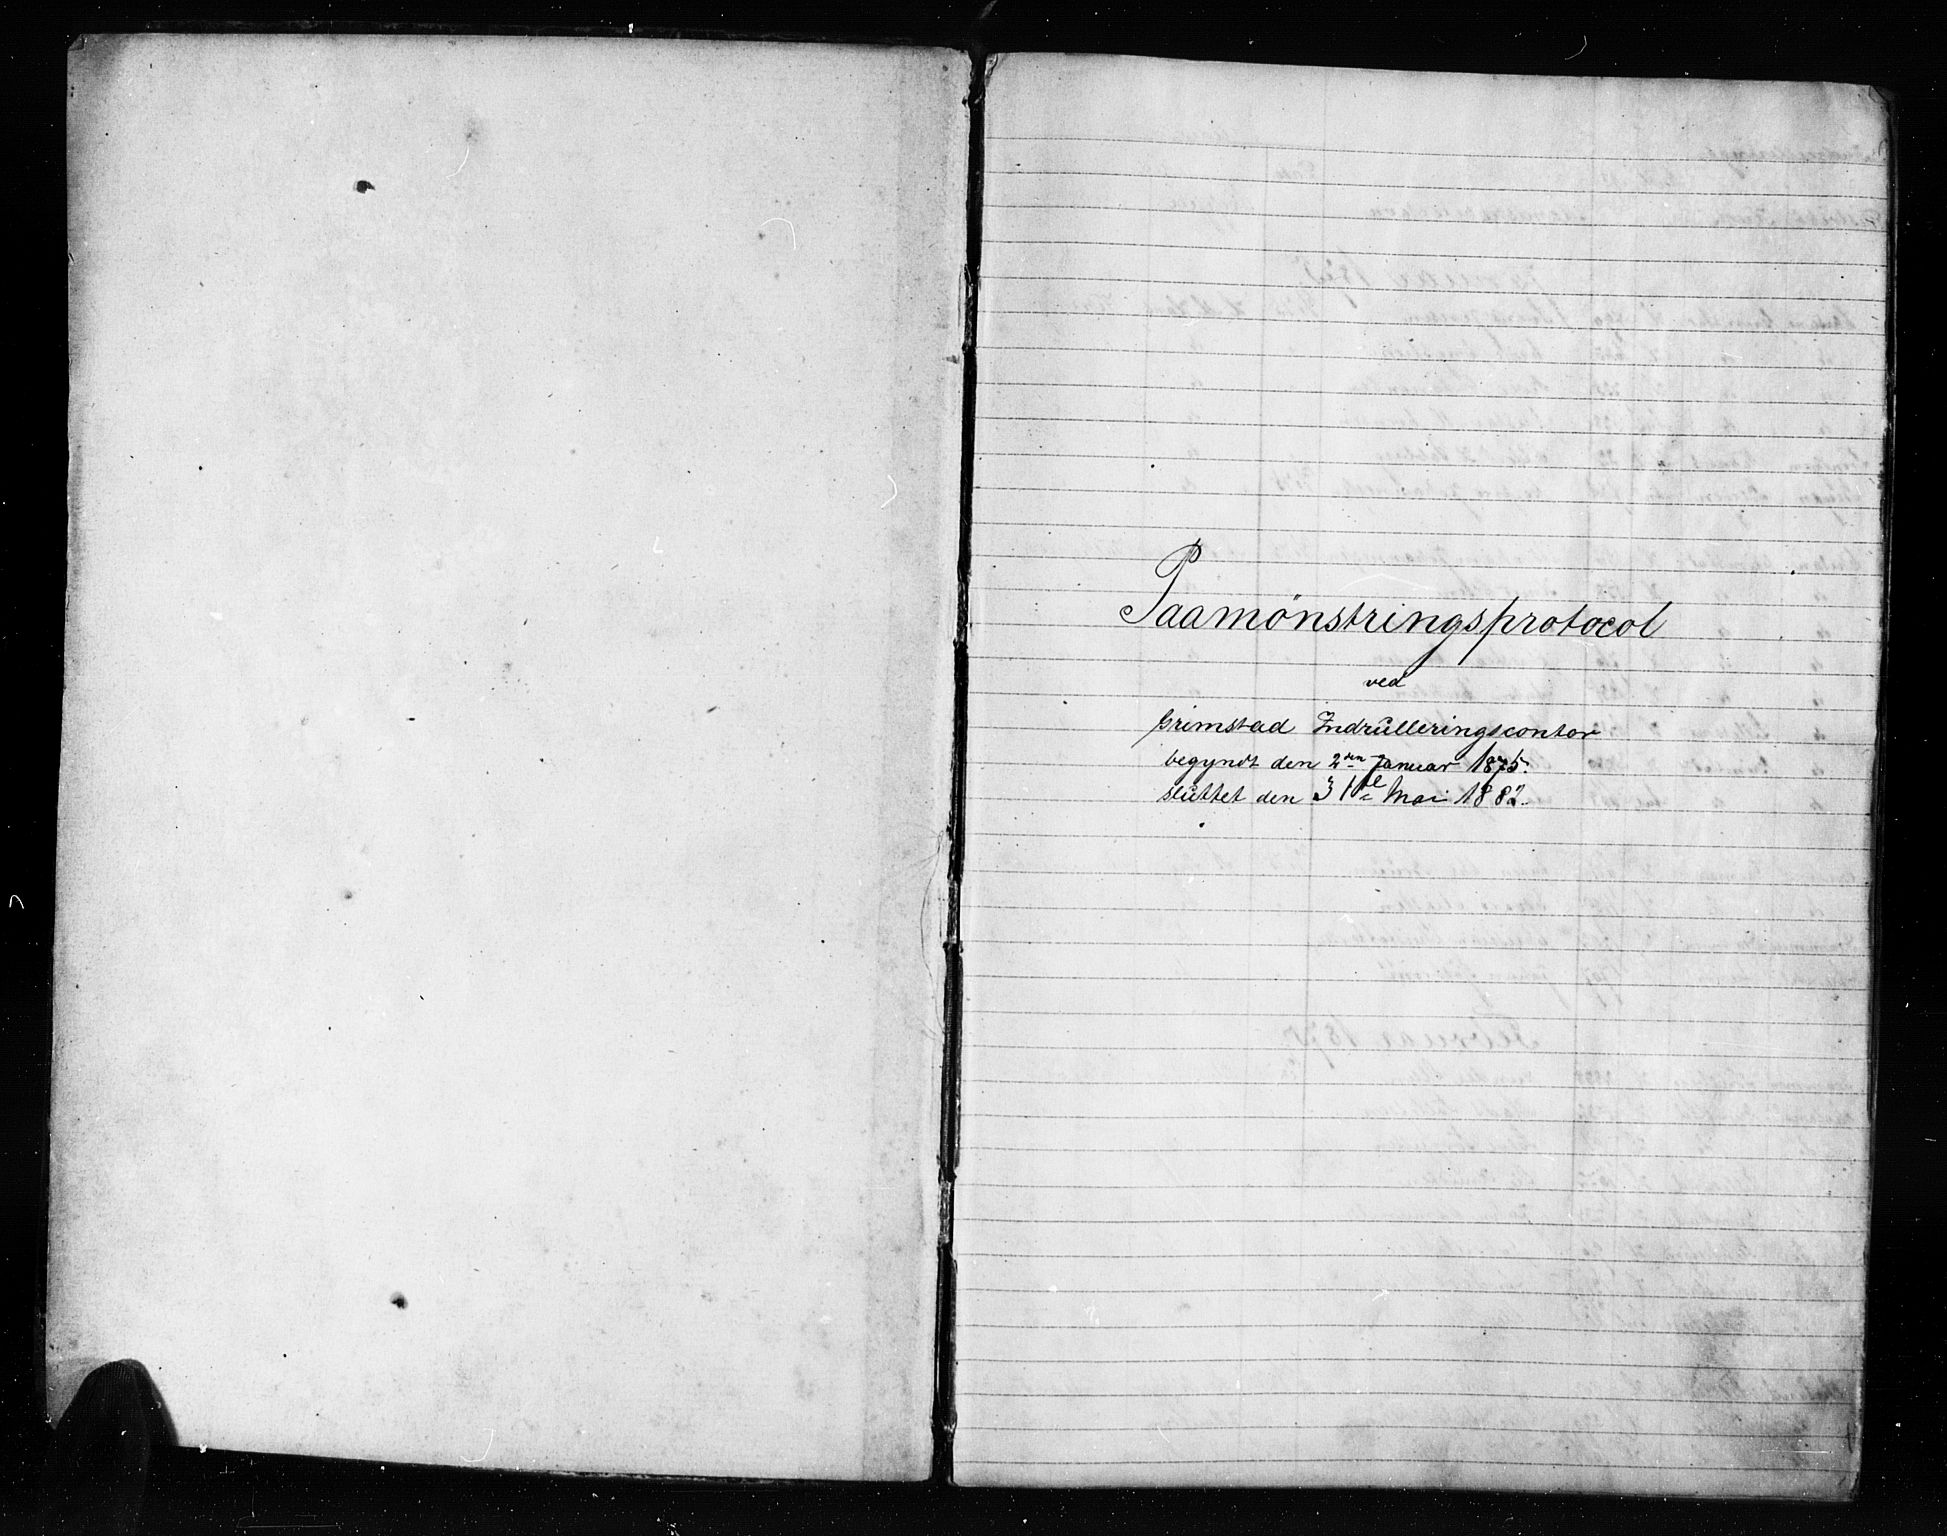 Paamönstringsprotocol
ved
Grimstad Indrulleringscontor
begyndt den 2den Januar 1875.
sluttet den 31te Mai 1882.